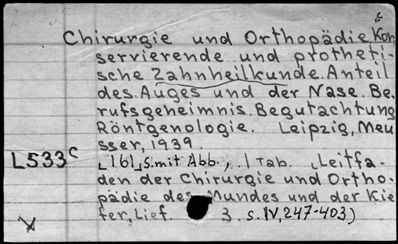 Chirurgie und Orthopädie Kon
servierende und protheti-
sche Zahnheilkunde. Anteil
des Auges und der Nase. Be.
rufsgeheimnis. Begutachtung
Röntgenologie. Leipzig, Meu
sser, 1939.
L533c
161, s. mit Abb., 1 Tab. Leitfa-
den der Chirurgie und Ortho-
pädie des Mundes und der Kie
fer, Lief. 3. S. IV, 247-403)